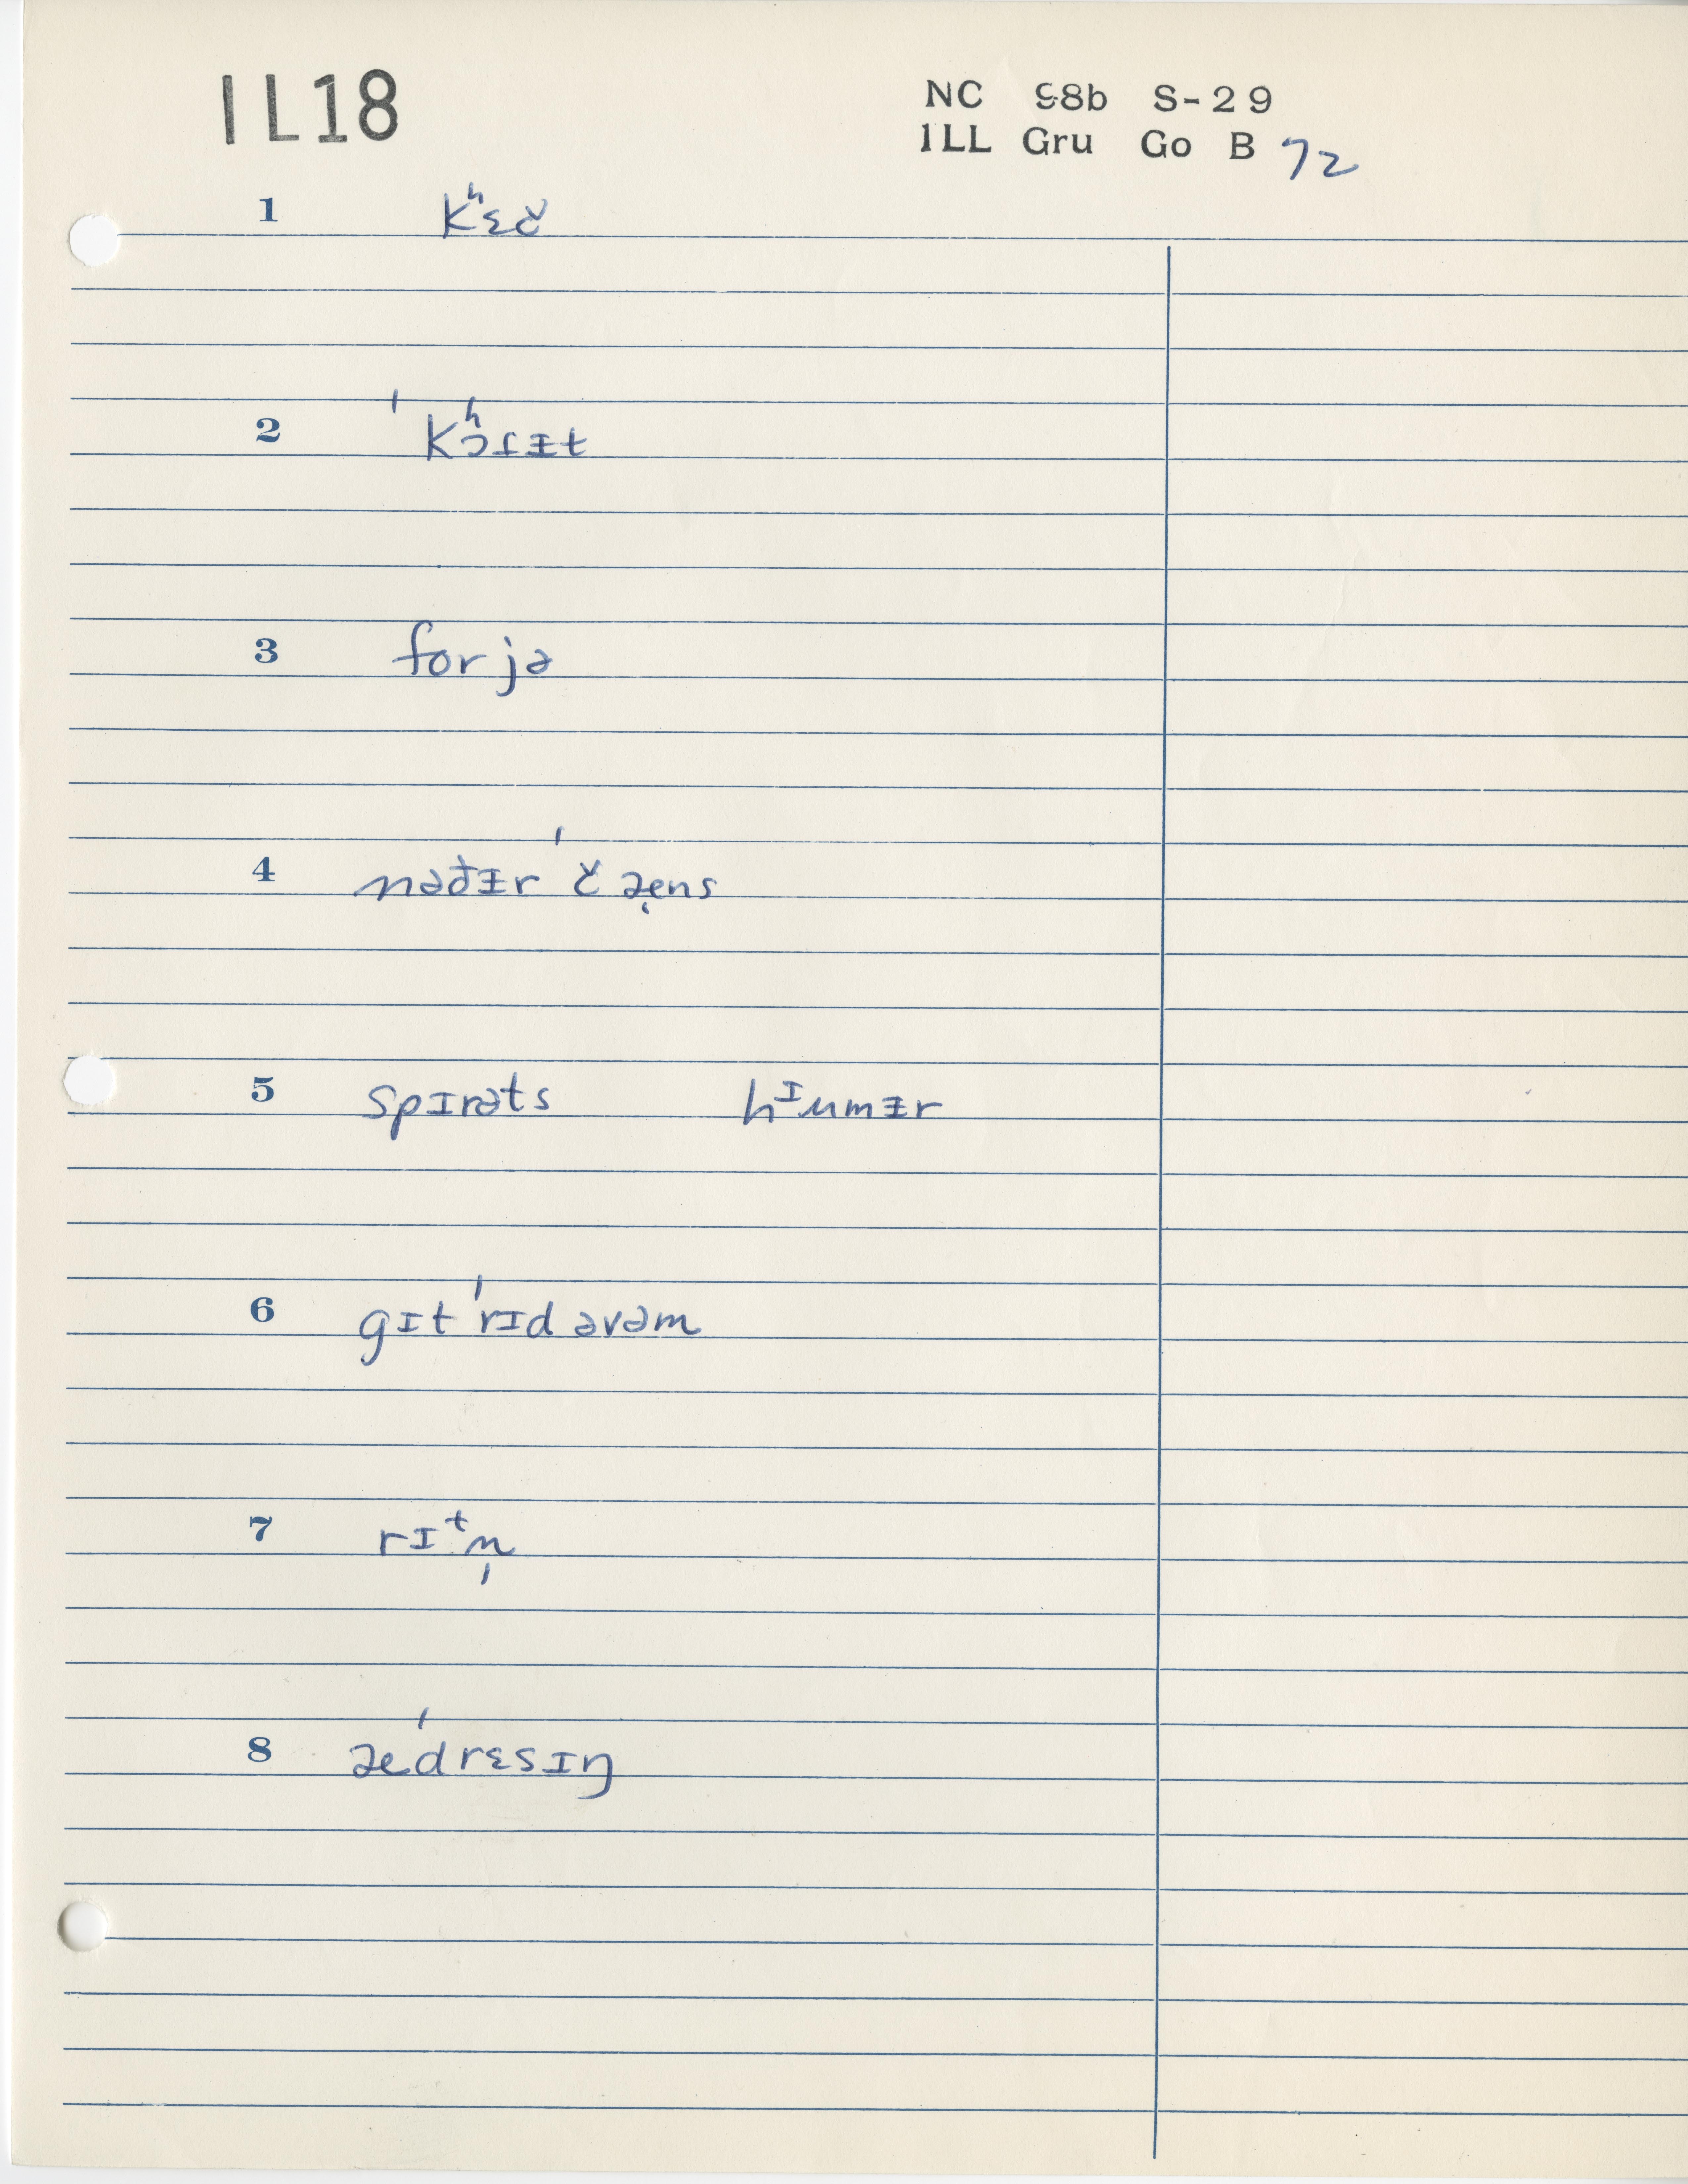 IL18
NC 98b S-29
ILL Gru Go B 72
1 kʰɛč
2 ˈkʰɔɾᵻt
3 forjə
4 nəðᵻr ˈčæ̣ns
5 spɪrəts hᴵumᵻr
6 gɪt ˈrɪd əvəm
7 rɪᵗn̩
8 ædˈrɛsɪŋ